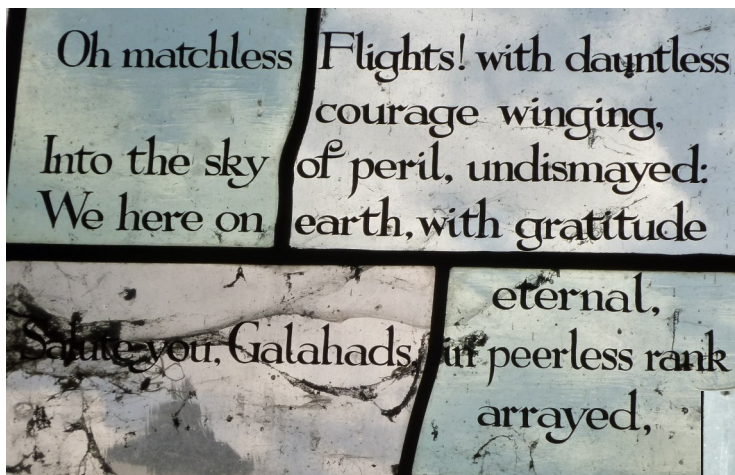 Oh matchless Flights! with dauntless
courage winging,
Into the sky of peril, undismayed:
We here on earth, with gratitude
eternal,
Salute you, Galahads, in peerless rank
arrayed,